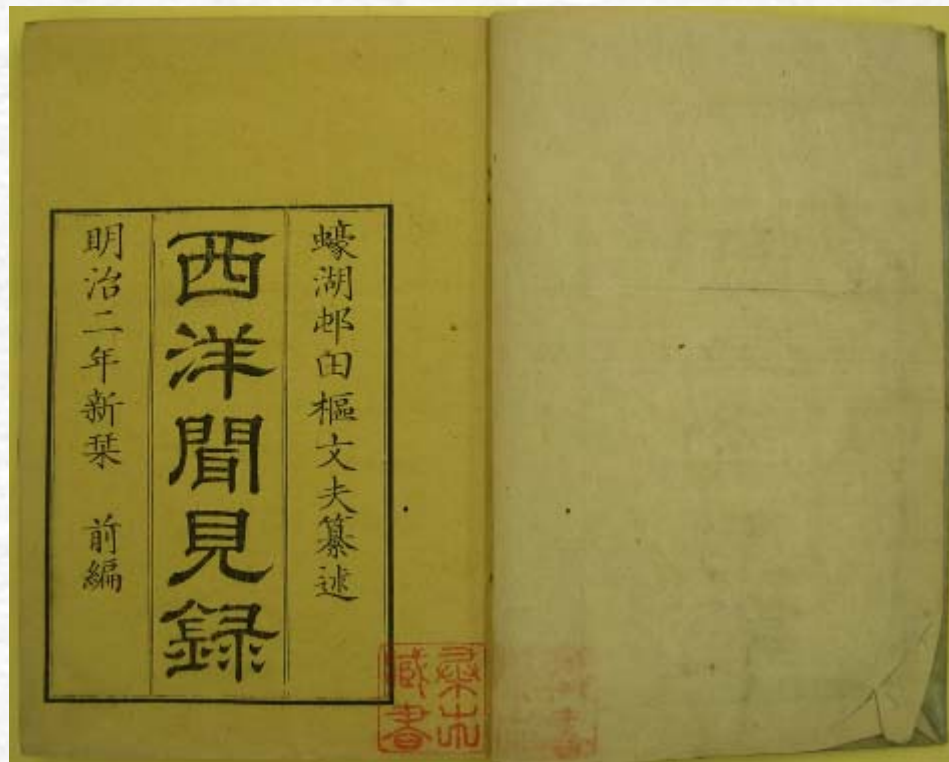 蠔湖邨田樞文夫纂述
西洋聞見録
明治二年新栞 前編
桑木
蔵書